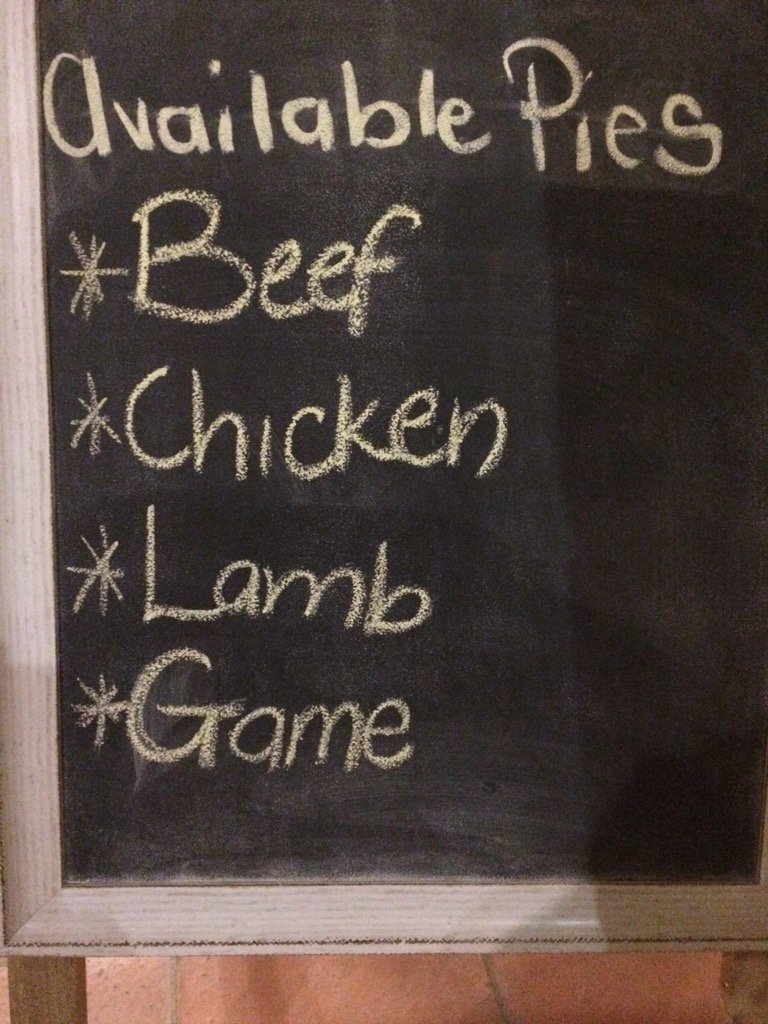 Available Pies
* Beef
* Chicken
* Lamb
* Game